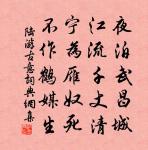 夜泊武昌城
江流千丈清
宁为雁奴死
不作鹤媒生
陆游古意词典网集